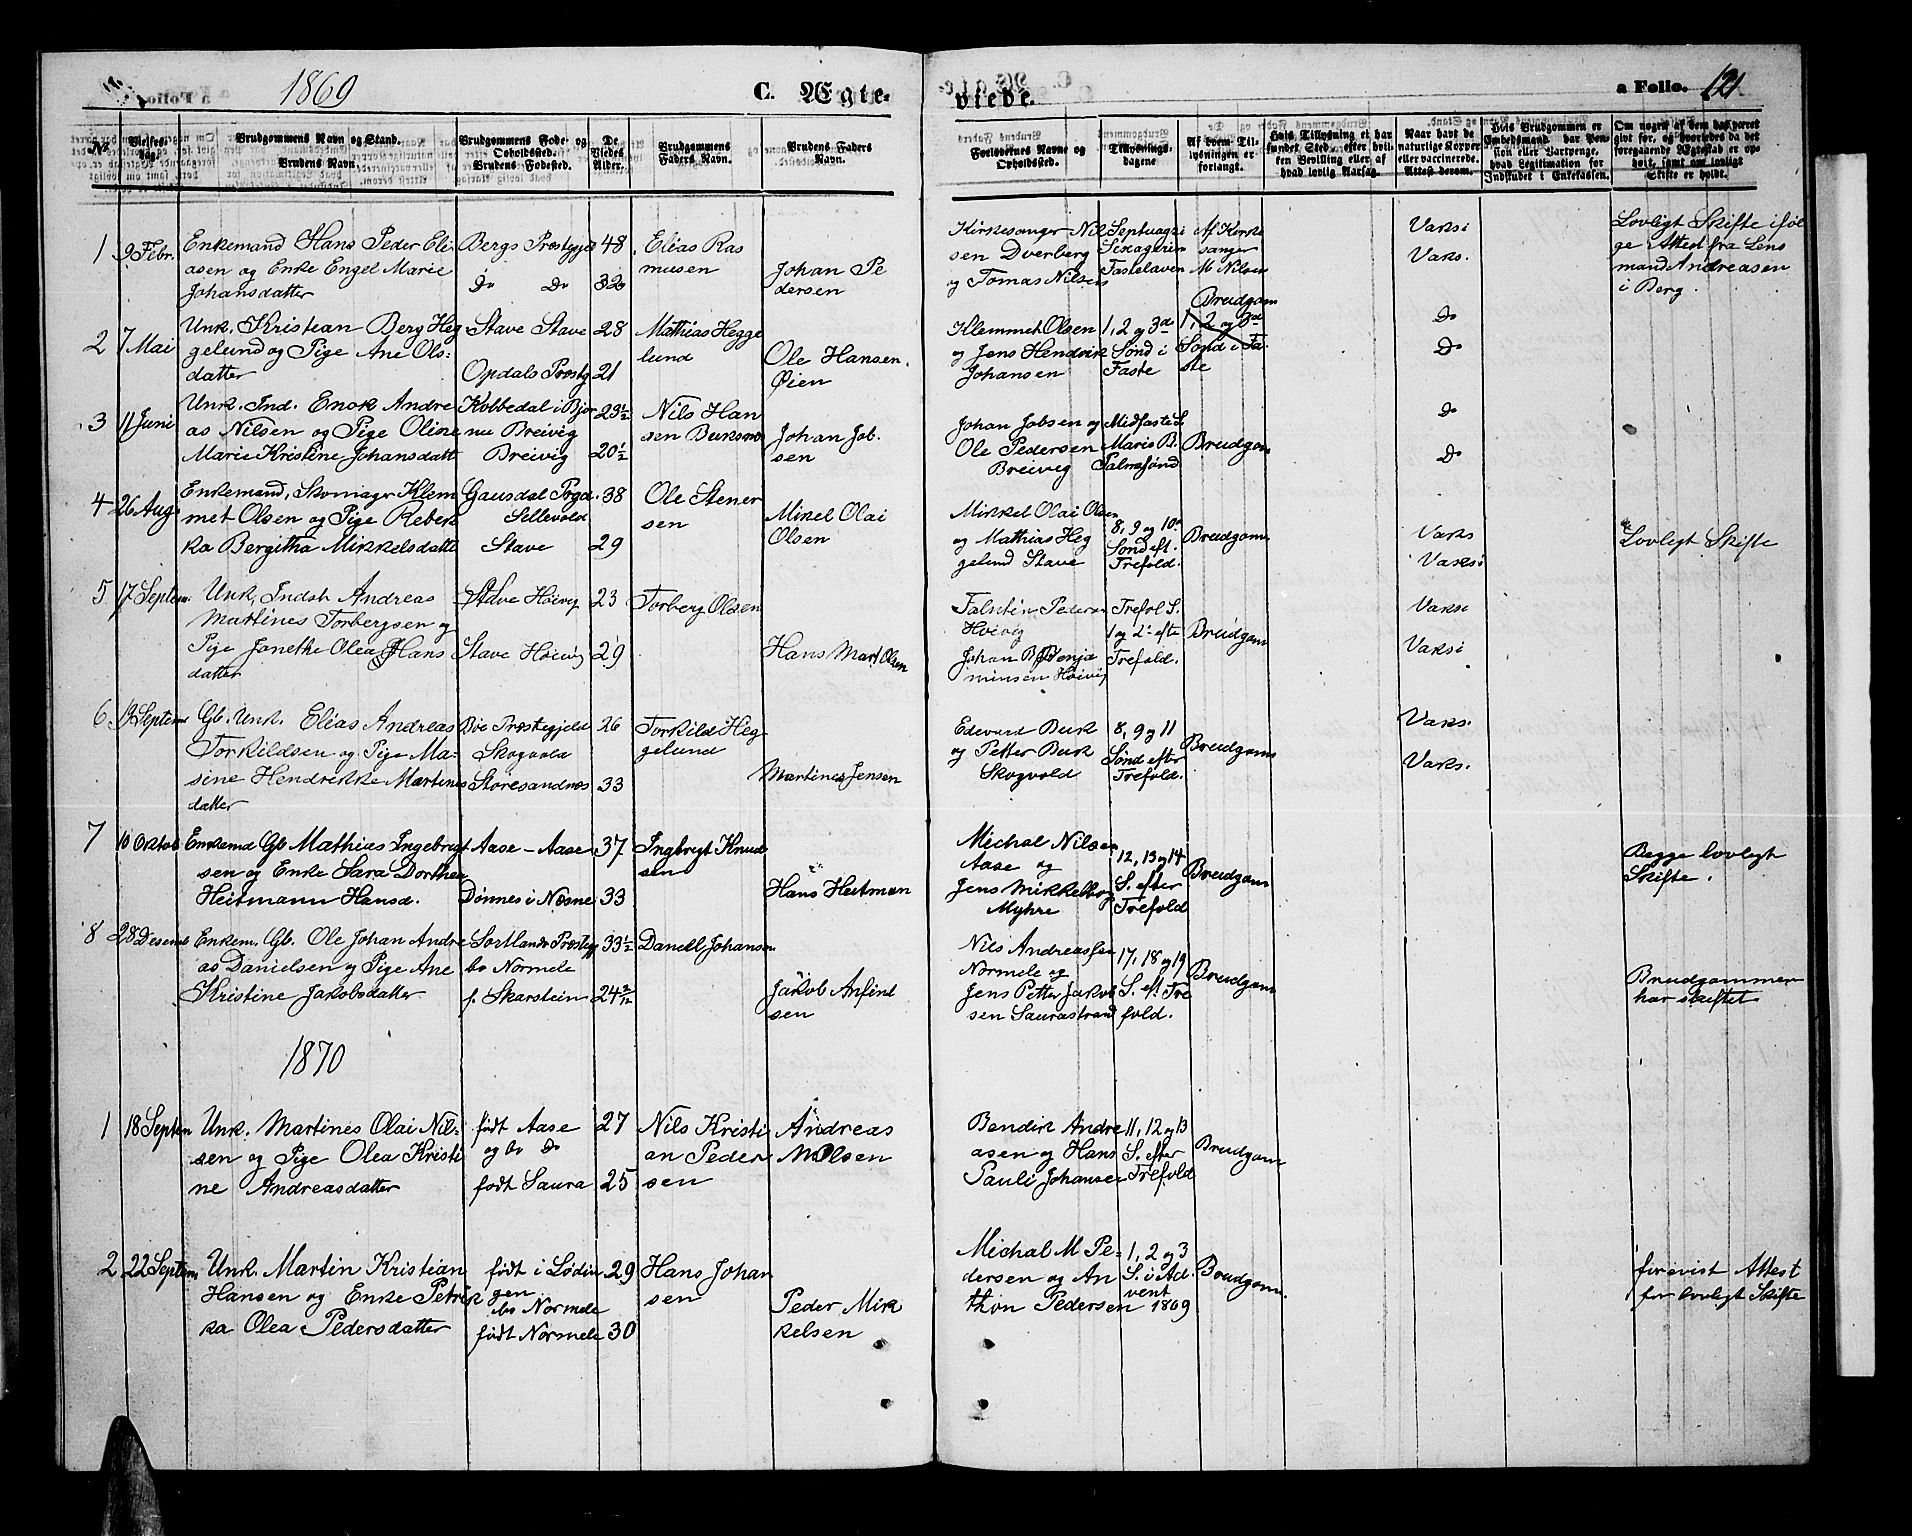 1869
C. Ægte-
viede.
a Folio. 121
No.
Vielses-
dag.
Brudgommens Navn og Stand.
Brudens Navn.
Brudgommens Føde- og
Opholdssted.
Brudens Fødested.
De
Viedes
Alder.
Brudgommens
Faders Navn.
Brudens Faders
Navn.
Forlovernes Navne og
Opholdssted.
Tillysnings-
dagene
Af hvem Til-
lysningen er
forlangt.
Hvis Tillysning ei har
fundet Sted, efter hvil-
ken Bevilling eller af
hvad lovlig Aarsag.
Naar havt de
naturlige Kopper
eller vaccinerede.
Attest derom.
Hvis Brudgommen er
Embedsmand, har Pen-
sion eller Vartpenge,
hvad Legitimation for
Indskudet i Enkekassen.
Om nogen af dem har været
gift før, og hvorledes da det
foregaaende Ægteskab er op-
hørt, samt om lovligt
Skifte er holdt.
1 9 Febr. Enkemand Hans Peder Eli
asen og Enke Engel Marie
Johansdatter
Bergs Præstegjel
Do Do
48
32
Elias Ras
musen
Johan Pe
dersen
Kirkesanger Nil
sen Dverberg
og Tomas Nilsen
Septuag:
Sexagesim
Fastelaven
Af Kirke
sanger
M Nilsen
Vaksi
Vaks.
Lovligt Skifte iføl
ge Attest fra Lens
mand Andreasen
i Berg.
2 7 Mai Unk. Kristian Berg Heg
gelund og Pige Ane Ols-
datter
Stave Stave
Opdals Præstg
28
21
Mathias Hegge
lund
Ole Hansen
Øien
Klemmet Olsen
og Jens Hendrik
Johansen
1, 2 og 3de
Sønd i
Faste
Brudgom
1, 2 og 3de
Sønd i Fa-
ste
Do
Do
3 11 Juni Unk. Ind. Enok Andre
as Nilsen og Pige Oline
Marie Kristine Johansdatt
Kobbedal i Bjør
nu Breivig
Breivig
23½
20½
Nils Han
sen Buksnes
Johan Job.
sen
Johan Jobsen og
Ole Pedersen
Breivig
Midfaste S.
Maria B.
Palmesønd
Brudgom
Do
Do
4 26 Aug. Enkemand, Skomagr Klem
met Olsen og Pige Rebek
ka Bergitha Mikkelsdatte
Gausdal Pgd.
Sellevold
Stave
38
29
Ole Stener
sen
Mikel Olai
Olsen
Mikkel Olai Olsen
og Mathias Heg
gelund Stave
8, 9 og 10de
Sønd eft.
Trefold.
Brudgom
Vaks
Vaksi
Lovligt Skifte
5 17 Septem. Unk. Indst Andreas
Martines Torbergsen og
Pige Janethe Olea Hans
datter
Stave Høivig
Stave Høivig
23
29
Torberg Olsen
Hans Mart Olsen
Falntin Peders
Høivig
Johan Benja
minsen Høivig
Trefol S.
1 og 2: efte
Trefold.
Brudgom
Vaksi
Vaksi
6 19 Septem Gb. Unk. Elias Andreas
Torkildsen og Pige Ma-
sine Hendrikke Martines
datter
Bøe Præstegjeld
Skogvold
Storesandnes
26
33
Torkild Heg
gelund
Martines Jensen
Edevard Buk
og Petter Buk
Skogvold
8, 9 og 11
Sønd efter
Trefold.
Brudgom
Vaks.
Vaks.
7 10 Oktob Enkemd Gb Mathias Ingebregt
sen og Enke Sara Dorthea
Heitmann Hansd.
Aase - Aase
Dønnes i Næsne
37
33
Ingbregt Knud
sen
Hans Heitman
Michal Nilsen
Aase og
Jens Mikkelborg
Myhre
12, 13 og 14
S. efter
Trefold
Brudgom
Begge lovligt
Skifte.
8 28 Desemb Enkem. Gb. Ole Johan Andre
as Danielsen og Pige Ane
Kristine Jakobsdatter
Sortlands Præsteg
bo Normele
f. Skarstein
33½
24 2/12
Daniel Johansen
Jakob Anfind
sen
Nils Andreassen
Normele og
Jens Petter Jakob
sen Saurastrand
17, 18 og 19
S. eft Tre
fold.
Brudgom
Brudgommen
har skiftet
1870
1 18 Septem Unk. Martines Olai Nil-
sen og Pige Olea Kristi
ne Andreasdatter
født Aase
og bo Do
født Saura
27
25
Nils Kristi
an Peder
sen
Andreas
M Olsen
Bendik Andre
asen og Hans
Pauli Johansen
11, 12 og 13
S. efter
Trefold
Brudgom
2 22 Septem Unk. Martin Kristian
Hansen og Enke Petrik
ka Olea Pedersdatter
født i Lødin
gen
bo Normele
født Normele
29
30
Hans Johan
sen
Peder Mik
kelsen
Michal M Pe-
dersen og An
thon Pedersen
1, 2 og 3
S. i Ad-
vent
1869
Brudgom.
forevist Attest
for lovligt Skifte